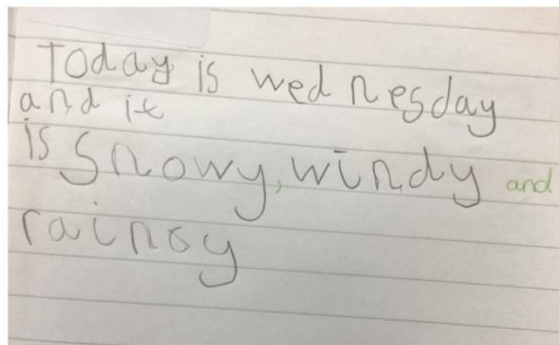 Today is wednesday
and it
is Snowy, windy and
rainsy